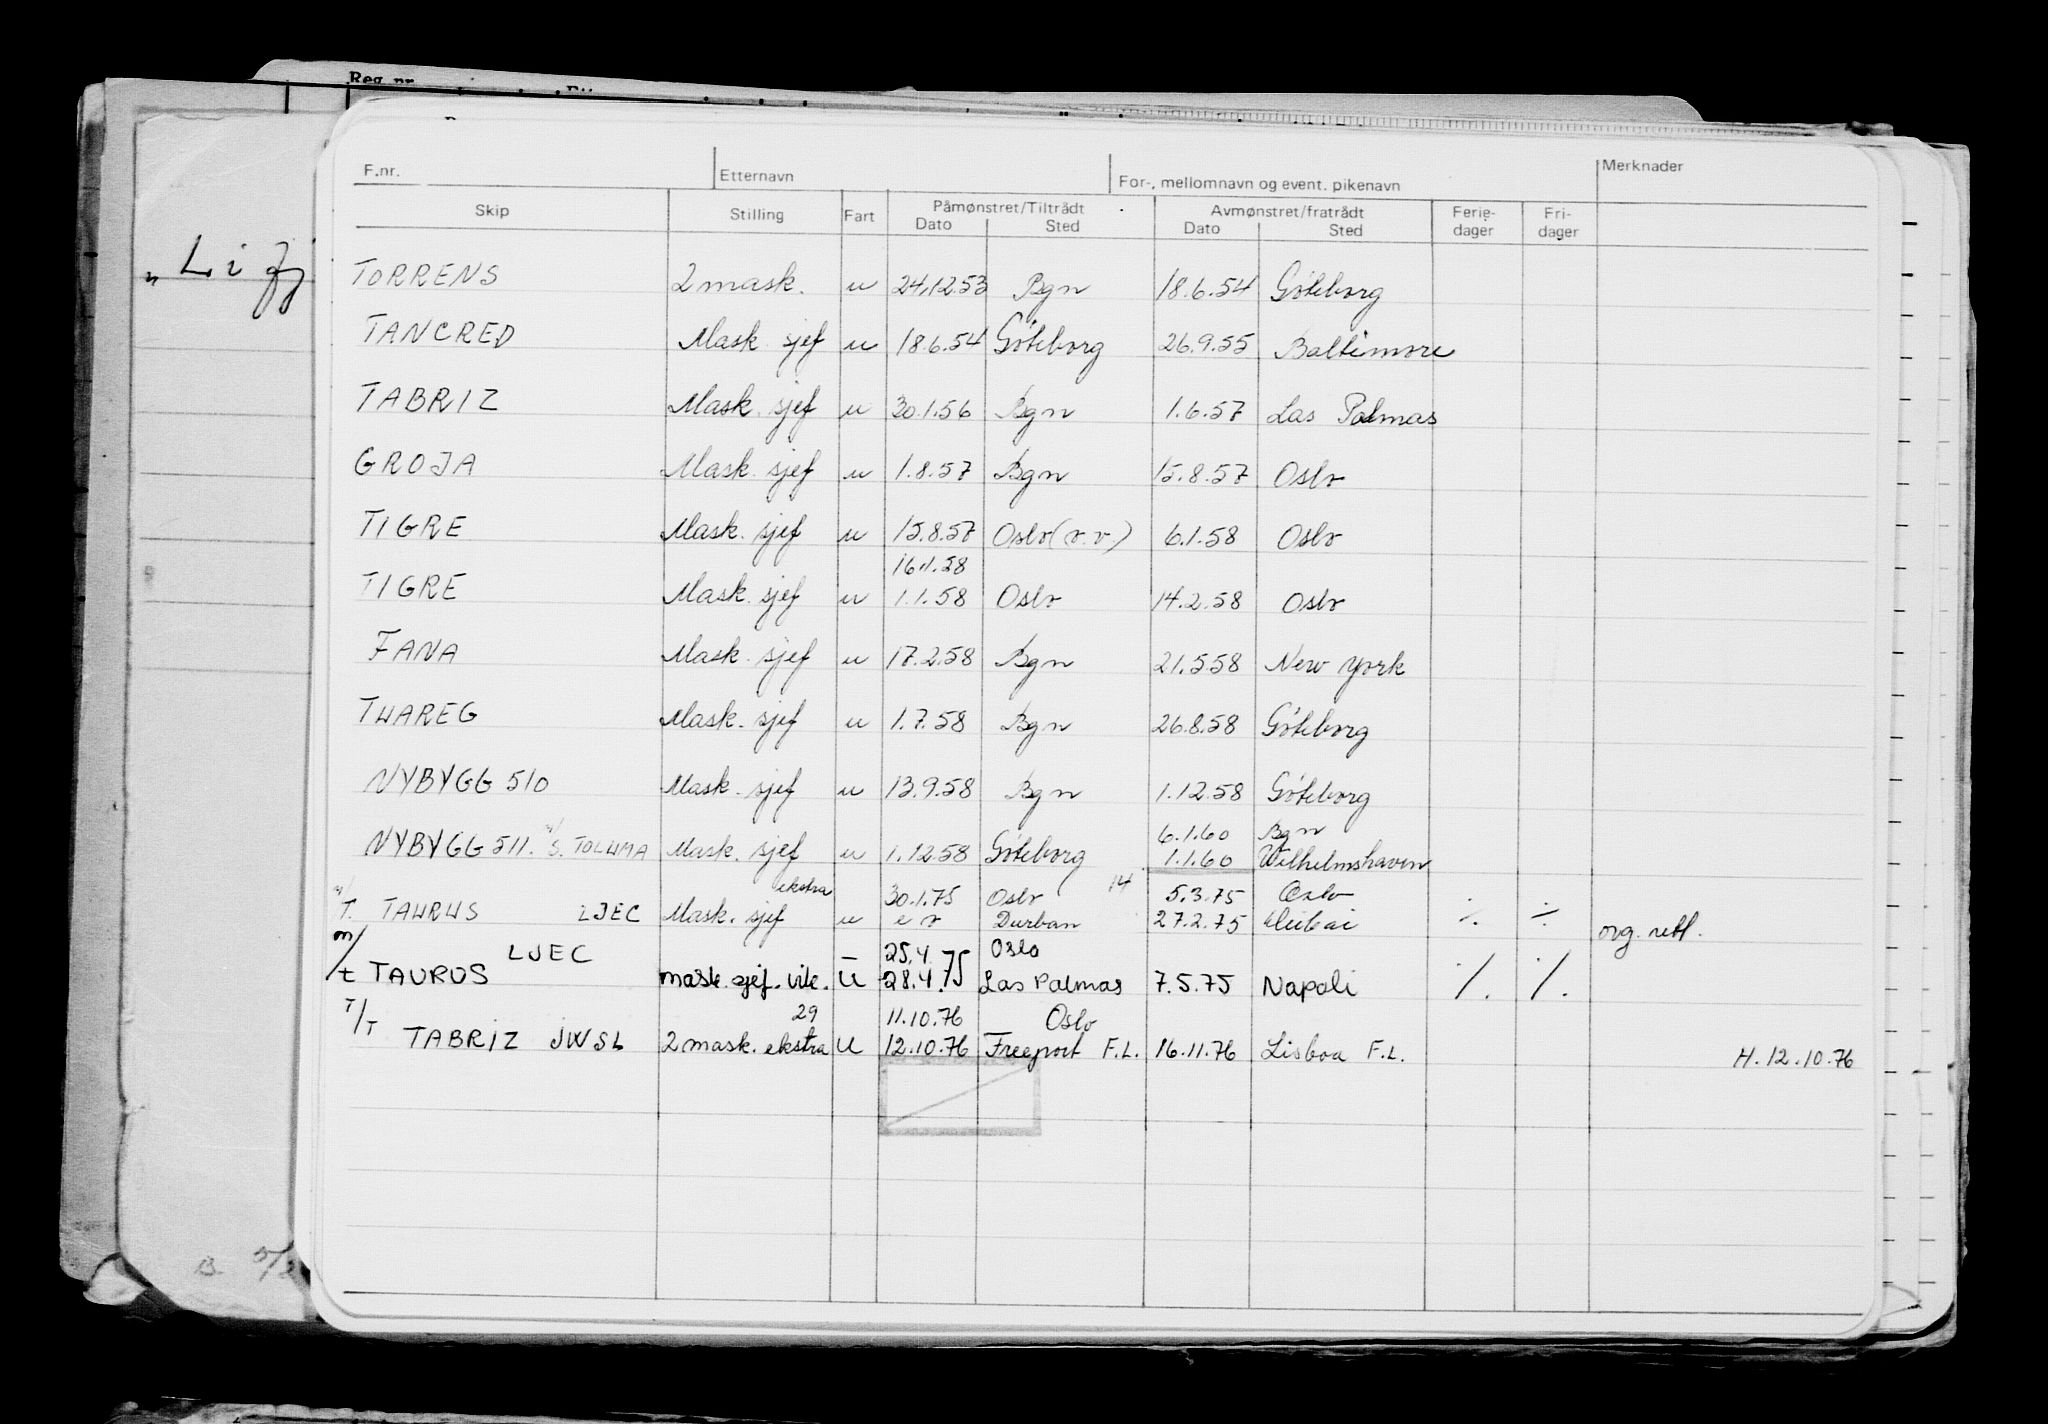 Reg. nr.
F.nr. Etternavn For-, mellomnavn og event. pikenavn Merknader
Skip Stilling Fart Påmønstret/Tiltrådt Avmønstret/fratrådt Ferie- Fri-
Dato Sted Dato Sted dager dager
TORRENS 2 mask. u 24.12.53 Bgn 18.6.54 Göteborg
TANCRED Mask. sjef u 18.6.54 Göteborg 26.9.55 Baltimore
TABRIZ Mask. sjef u 30.1.56 Bgn 1.6.57 Las Palmas
GROJA Mask. sjef u 1.8.57 Bgn 15.8.57 Oslo
TIGRE Mask. sjef u 15.8.57 Oslo (v.v.) 6.1.58 Oslo
16.1.58
TIGRE Mask. sjef u 1.1.58 Oslo 14.2.58 Oslo
FANA Mask. sjef u 17.2.58 Bgn 21.5.58 New York
TUAREG Mask. sjef u 1.7.58 Bgn 26.8.58 Göteborg
NYBYGG 510 Mask. sjef u 13.9.58 Bgn 1.12.58 Göteborg
6.1.60 Bgn
NYBYGG 511. M/S. TOLUMA Mask. sjef u 1.12.58 Göteborg 1.1.60 Wilhelmshaven
ekstra 30.1.75 Oslo 14 5.3.75 Oslo
M/T. TAURUS LJEC Mask. sjef u e r Durban 27.2.75 Dubai ÷ ÷ org. rett.
LJEC 25.4. Oslo
m/t TAURUS mask. sjef. vik. U 28.4.75 Las Palmas 7.5.75 Napoli ÷. ÷.
29 11.10.76 Oslo
T/T TABRIZ JWSL 2 mask. ekstra U 12.10.76 Freeport F.L. 16.11.76 Lisboa F.L. H. 12.10.76